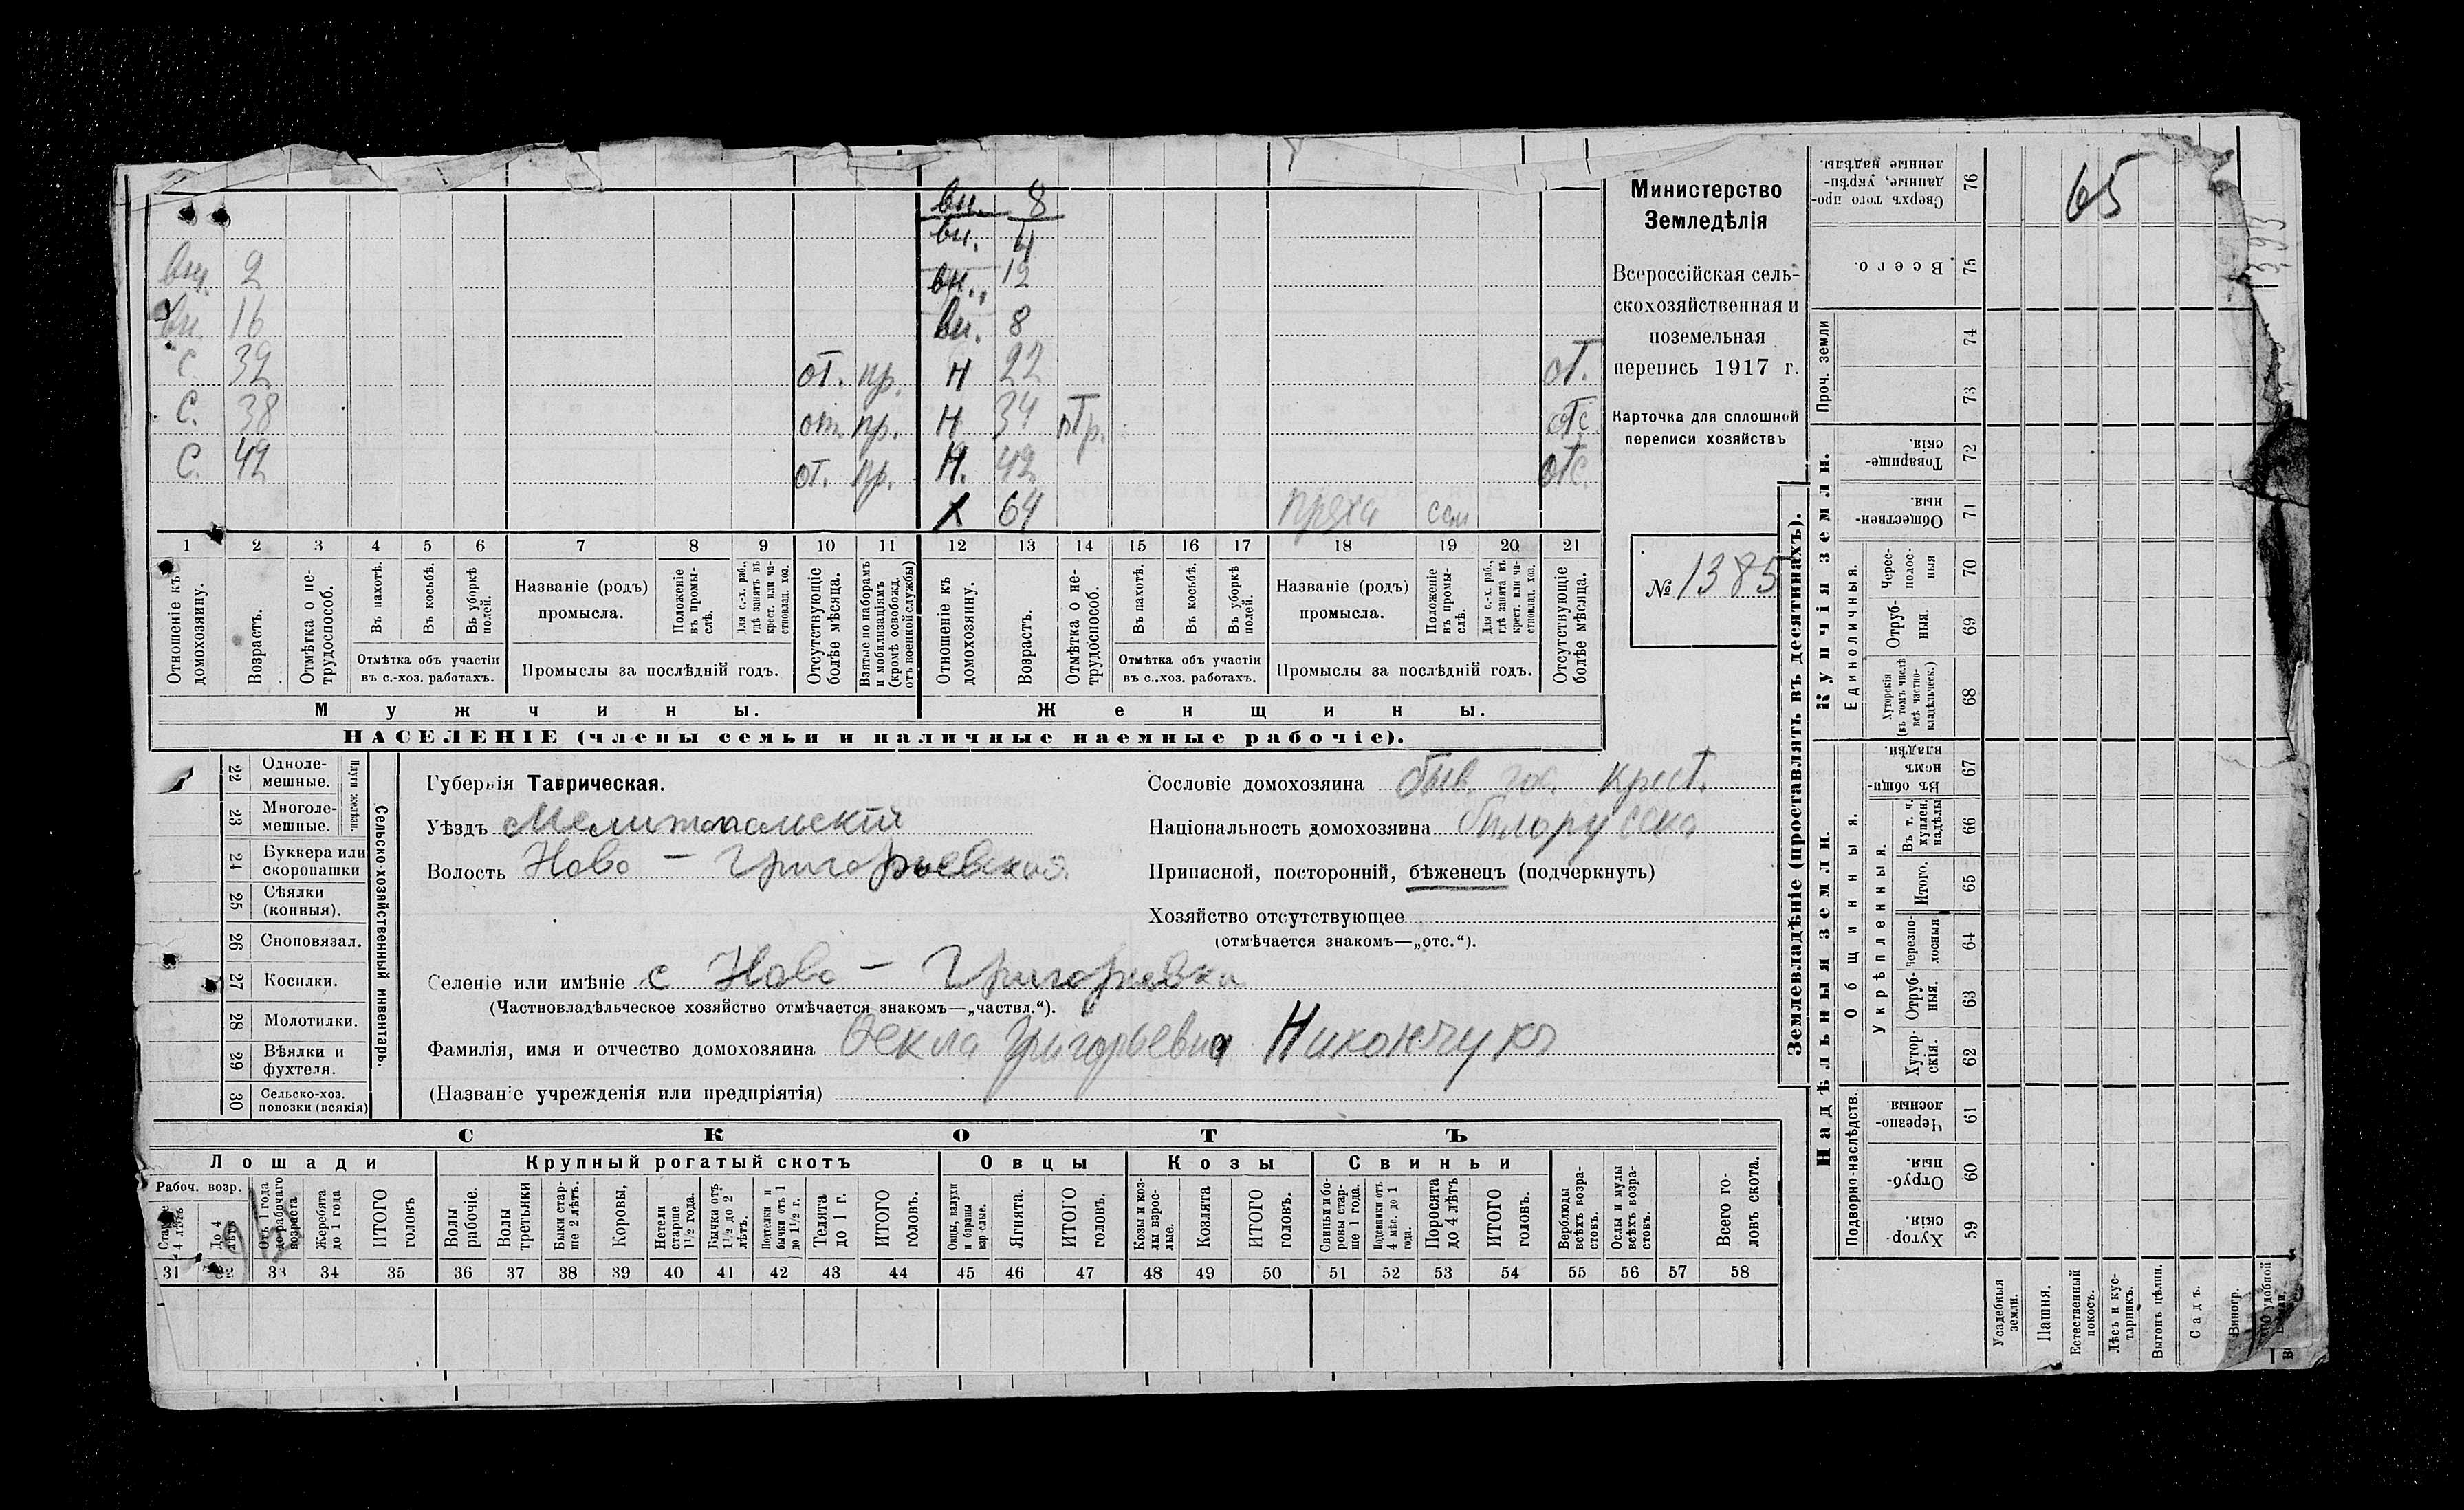 вн. 8
вн. 4
вн. 2 вн. 12
вн. 16 вн. 8
С. 32 от. пр. Н 22 от.
С. 38 от. пр. Н. 34 отс.
С. 42 от. пр. Н. 42 отс.
Х 64 пряха
1 2 3 4 5 6 7 8 9 10 11 12 13 14 15 16 17 18 19 20 21
Отношеніе къ домохозяину.
Возрастъ.
Отмѣтка о нетрудоспособ.
Въ пахотѣ.
Въ косьбѣ.
Въ уборкѣ полей.
Отмѣтка объ участіи
въ с.-хоз. работахъ.
Названіе (родъ)
промысла.
Положеніе въ промыслѣ.
Для с.-х. раб., гдѣ занятъ въ крест. или частновлад. хоз.
Промыслы за послѣдній годъ.
Отсутствующіе болѣе мѣсяца.
Взятые по наборамъ и мобилизаціямъ (кромѣ освобожд. отъ военной службы)
Отношеніе къ домохозяину.
Возрастъ.
Отмѣтка о нетрудоспособ.
Въ пахотѣ.
Въ косьбѣ.
Въ уборкѣ полей.
Отмѣтка объ участіи
въ с..хоз. работахъ.
Названіе (родъ)
промысла.
Положеніе въ промыслѣ.
Для с.-х. раб., гдѣ занята въ крест. или частновлад. хоз.
Промыслы за послѣдній годъ.
Отсутствующіе болѣе мѣсяца.
Мужчины.
Женщины.
НАСЕЛЕНІЕ (члены семьи и наличные наемные рабочіе).
Министерство
Земледѣлія
Всероссійская сель-
скохозяйственная и
поземельная
перепись 1917 г.
Карточка для сплошной
переписи хозяйствъ
№ 1385
22 Одноле-
мешные.
23 Многоле-
мешные.
Плуги желѣзн.
24 Буккера или
скоропашки
25 Сѣялки
(конныя).
26 Сноповязал.
27 Косилки.
28 Молотилки.
29 Вѣялки и
фухтеля.
30 Сельско-хоз.
повозки (всякія)
Сельско-хозяйственный инвентарь.
Губернія Таврическая.
Уѣздъ Мелитопольскій
Волость Ново - Григорьевская
Селеніе или имѣніе с Ново - Григорьевка
(Частновладѣльческое хозяйство отмѣчается знакомъ—„частвл.“).
Фамилія, имя и отчество домохозяина Фекла Григорьевна Никончукъ
(Названіе учрежденія или предпріятія)
Сословіе домохозяина быв. гос. крест.
Національность домохозяина
Приписной, посторонній, бѣженецъ (подчеркнуть)
Хозяйство отсутствующее
(отмѣчается знакомъ—„отс.“).
СКОТЪ
Лошади
Рабоч. возр.
Старше 4 лѣтъ
До 4 лѣтъ
Отъ 1 года до рабочаго возраста
Жеребята до 1 года
ИТОГО головъ
Крупный рогатый скотъ
Волы рабочіе.
Волы третьяки
Быки старше 2 лѣтъ.
Коровы.
Нетели старше 1½ года.
Бычки отъ 1½ до 2 лѣтъ.
Подтелки и бычки отъ 1 до 1½ г.
Телята до 1 г.
ИТОГО головъ.
Овцы
Овцы, валухи и бараны взрослые.
Ягнята.
ИТОГО головъ.
Козы
Козы и козлы взрослые.
Козлята
ИТОГО головъ.
Свиньи
Свиньи и боровы старше 1 года.
Подсвинки отъ 4 мѣс. до 1 года.
Поросята до 4 лѣтъ
ИТОГО головъ.
Верблюды всѣхъ возрастовъ.
Ослы и мулы всѣхъ возрастовъ.
Всего головъ скота.
31 32 33 34 35 36 37 38 39 40 41 42 43 44 45 46 47 48 49 50 51 52 53 54 55 56 57 58
Землевладѣніе (проставлять въ десятинахъ).
Купчія земли.
Надѣльныя земли.
Сверхъ того проданные, укрѣпленные надѣлы. 76
65
Всего. 75
Проч. земли 74 73
Товарищескія. 72
Общественныя. 71
Единоличныя.
Черес-полосныя 70
Отрубныя. 69
Хуторскія (въ томъ числѣ всѣ частновладѣльческ.) 68
Въ общинномъ владѣн. 67
Общинныя.
Укрѣпленныя.
Въ т. ч. куплен. надѣлы 66
Итого. 65
Черезполосныя 64
Отрубныя. 63
Хуторскія. 62
Подворно-наслѣдств.
Черезполосныя. 61
Отрубныя. 60
Хуторскія. 59
Усадебныя земли.
Пашня.
Естественный покосъ.
Лѣсъ и кустарникъ.
Выгонъ цѣлин.
Садъ.
Виногр.